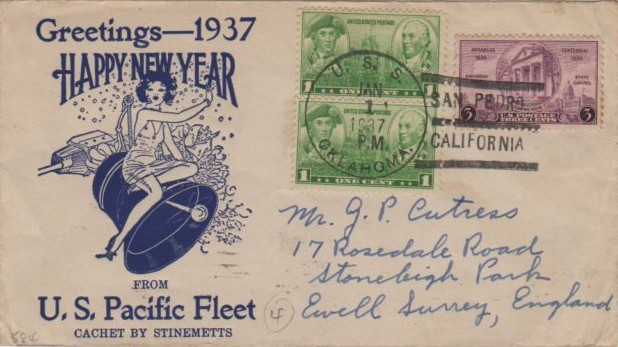 Greetings—1937
HAPPY NEW YEAR
FROM
U. S. Pacific Fleet
CACHET BY STINEMETTS
UNITED STATES POSTAGE
1 ONE CENT 1
1 ONE CENT 1
U. S. S.
JAN
1
1937
P.M.
OKLAHOMA.
SAN PEDRO
CALIFORNIA
ARKANSAS CENTENNIAL
1836 1936
STATE CAPITOL
U.S. POSTAGE
3 THREE CENTS 3
Mr. G. P. Cutress
17 Rosedale Road
Stoneleigh Park
Ewell Surrey, England
4